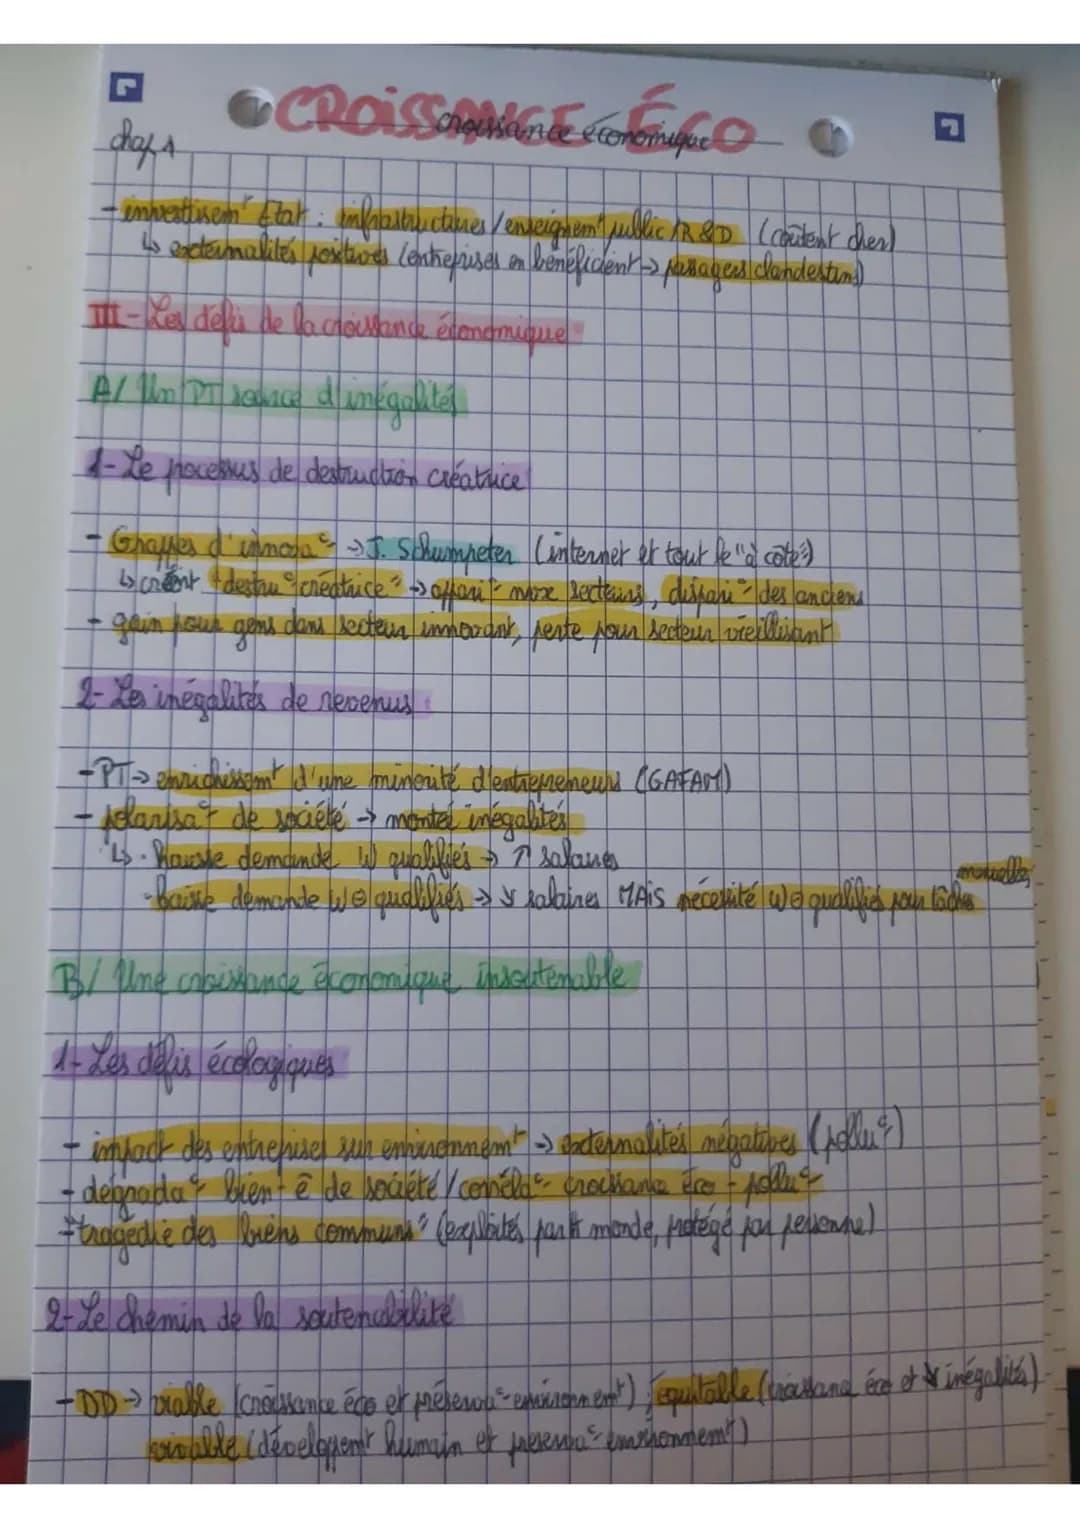 CROISSANCE ÉCO
croissance économique
chap 1
- investissemt État : infrastructures / enseignemt public / R&D (coûtent cher)
↳ externalités positives (entreprises en bénéficient → passagers clandestins)
III - Les défis de la croissance économique
A/ Un PT source d'inégalités
1- Le processus de destruction créatrice
- Grappes d'innova° → J. Schumpeter (internet et tout le "à côté")
↳ créent "destru° créatrice" → appari° nvx secteurs, dispari° des anciens
- gain pour gens dans secteur innovant, perte pour secteur vieillissant
2- Les inégalités de revenus :
- PT → enrichissemt d'une minorité d'entrepreneurs (GAFAM)
- polarisa° de société → montée inégalités
↳ · hausse demande W qualifiés → ↑ salaires
- baisse demande W ⊖ qualifiés → ↘ salaires MAIS nécessité W ⊖ qualifiés pour tâches manuelles
B/ Une croissance économique insoutenable
1- Les défis écologiques
- impact des entreprises sur environnemt → externalités négatives (pollu°)
- dégrada° bien-ê de société / corréla° croissance éco - pollu°
- "tragédie des biens communs" (exploités par tt monde, protégé par personne)
2- Le chemin de la soutenabilité
- DD → viable (croissance éco et préserva° environnemt), équitable (croissance éco et ↘ inégalités)
vivable (développemt humain et préserva° environnemt)